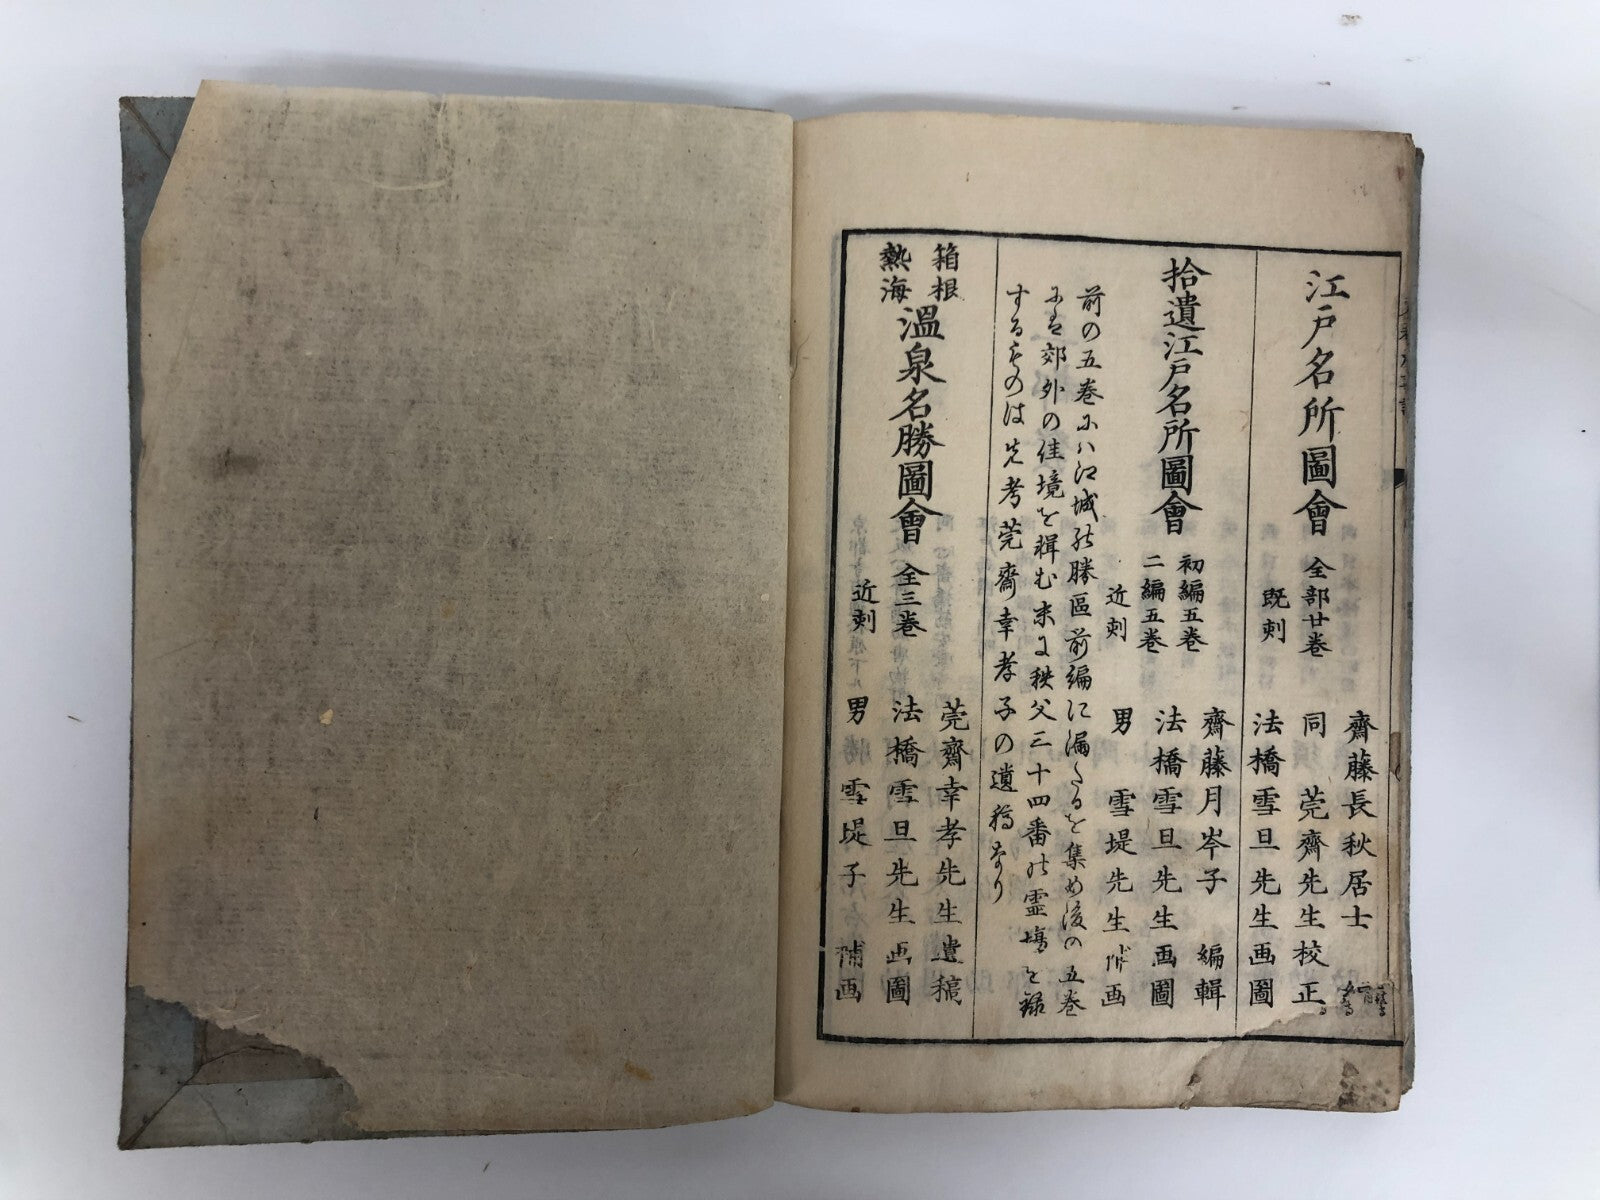 江戸名所圖會 全部廿巻
既刻
齋藤長秋居士
同 莞齋先生校正
法橋雪旦先生画圖
拾遺江戸名所圖會 初編五巻
二編五巻
近刻
齋藤月岑子 編輯
法橋雪旦先生画圖
男 雪堤先生 補画
前の五巻にハ江城の勝區前編に漏たるを集め後の五巻
にハ郊外の佳境を輯む末に秩父三十四番の霊塲を録
するものは先考莞齋幸孝子の遺稿なり
箱根
熱海
温泉名勝圖會 全三巻
近刻
莞齋幸孝先生遺稿
法橋雪旦先生画圖
男 雪堤子 補画